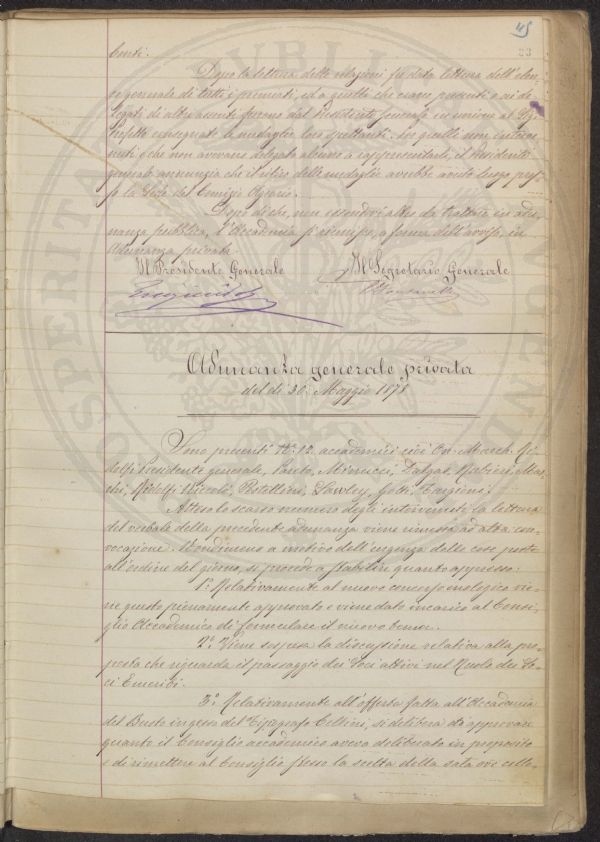 45
23
centi.
Dopo la lettura delle relazioni fu data lettura dell'elenco
generale di tutti i premiati, ed a quelli che erano presenti e ai de-
legati di altri assenti furono dal Presidente Generale in unione al
Prefetto consegnate le medaglie loro spettanti. Per quelli non interve-
nuti e che non avevano delegato alcuno a rappresentarli, il Presidente
generale annunzia che il ritiro delle medaglie avrebbe avuto luogo pres-
so la Sede del Comizio Agrario.
Dopo di che, non essendovi altro da trattare in adu-
nanza pubblica, l'Accademia si riunisce, a forma dell'avviso, in
Adunanza privata
Il Presidente Generale Il Segretario Generale
Adunanza generale privata
del dì 30 Maggio 1878
Sono presenti N.º 12 accademici cioè Cav. March. Ri-
dolfi Presidente generale, Pareto, Minucci, Dalgas, Rabbini, Mar-
chi, Ridolfi Niccolò, Pestellini, Lawley, Gotti, Targioni,
Atteso lo scarso numero degli intervenuti la lettura
del verbale della precedente adunanza viene rimessa ad altra con-
vocazione. Nondimeno a motivo dell'urgenza delle cose poste
all'ordine del giorno, si procede a stabilire quanto appresso:
1º Relativamente al nuovo concorso enologico vie-
ne questo pienamente approvato e viene dato incarico al Consi-
glio Accademico di formulare il nuovo tema.
2º Viene sospesa la discussione relativa alla pro-
posta che riguarda il passaggio dei Soci attivi nel Ruolo dei So-
ci Emeriti.
3º Relativamente all'offerta fatta all'Accademia
del Busto in gesso del Tipografo Cellini, si delibera di approvare
quanto il Consiglio accademico aveva deliberato in proposito
e di rimettere al Consiglio stesso la scelta della sala ove collo-